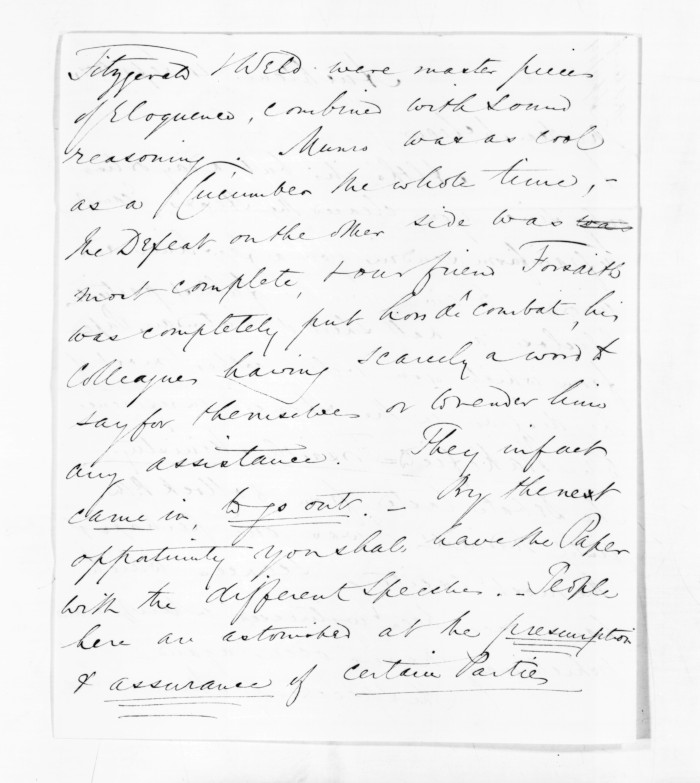 Fitzgerald & Weld were master pieces
of Eloquence, combined with Sound
reasoning. Munro was as cool
as a Cucumber the whole time, -
the Defeat on the other side was was
most complete, & our frien Forsaith
was completely put hors de combat, his
Colleagues having scarcely a word to
say for themselves or to render him
any assistance. They in fact
came in, to go out. - By the next
oppotunity you shall have the Paper
with the different Speeches. - People
here are astonished at the presumption
& assurance of certain Parties